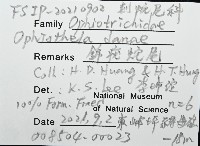 FSIP-20210902 刺蛇尾科
Family Ophiotrichidae
Ophiothela danae
Remarks 錦疣蛇尾
Coll: H. D. Huang & H. T. Hung
Det.: K. S. Lee 李坤瑄
National Museum
100% Form. Fixed of Natural Science n=6
Date 2021, 9, 2
008504-00023 -18m